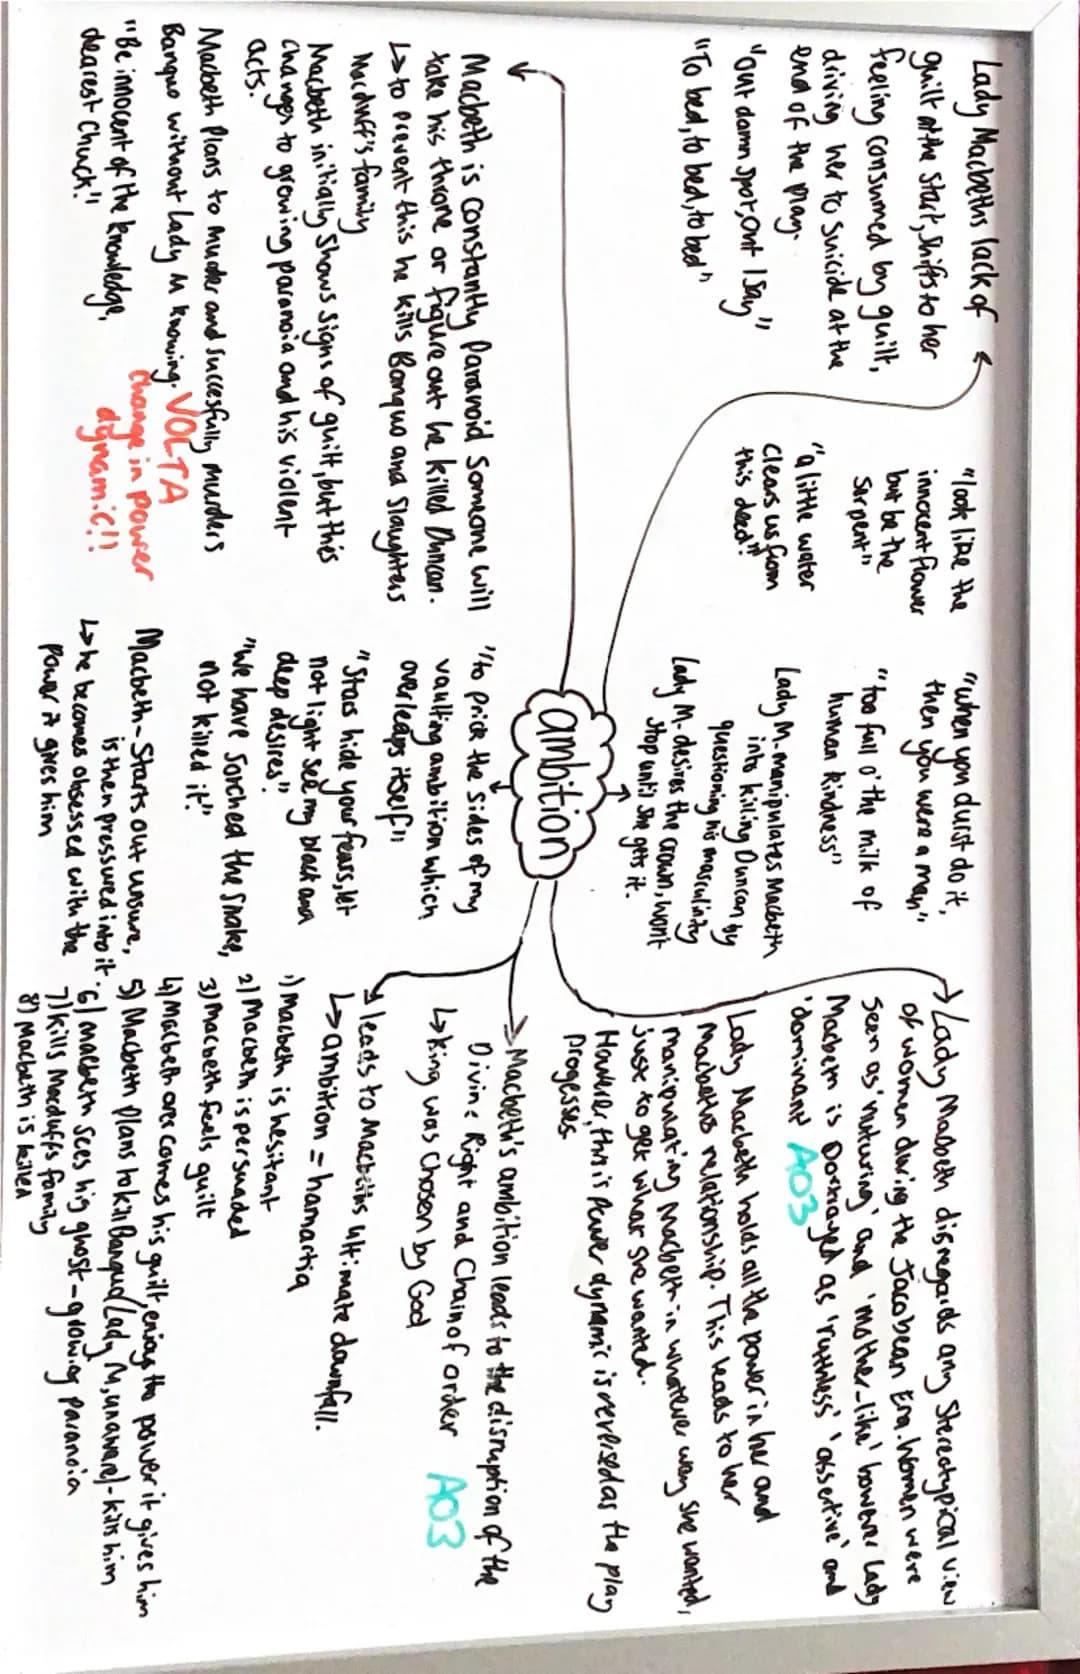 Lady Macbeths lack of
guilt at the start, shifts to her
feeling consumed by guilt,
driving her to suicide at the
end of the play.
"Out damn spot, out I say"
"To bed, to bed, to bed"
"look like the
innocent flower
but be the
serpent"
"a little water
clears us from
this deed"
"when you durst do it,
then you were a man"
"too full o' the milk of
human kindness"
Lady M. manipulates Macbeth
into killing Duncan by
questioning his masculinity
Lady M. desires the crown, won't
stop until she gets it.
Lady Macbeth disregards any Stereotypical view
of women during the Jacobean Era. Women were
seen as 'nuturing' and 'mother-like' however Lady
Macbeth is Portrayed as 'ruthless' 'assertive' and
'dominant' AO3
Lady Macbeth holds all the power in her and
Macbeths relationship. This leads to her
manipulating Macbeth in whatever way she wanted,
just to get what she wanted.
However, this power dynamic is reversed as the play
Progesses
ambition
Macbeth is constantly Paranoid Someone will
take his throne or figure out he killed Duncan.
↳ to prevent this he kills Banquo and Slaughters
Macduff's family
Macbeth initially shows signs of guilt, but this
changes to growing paranoia and his violent
acts.
Macbeth Plans to murder and succesfully murders
Banquo without lady M knowing. VOLTA
"Be innocent of the knowledge,
dearest Chuck"
change in power
dynamic!!
"to prick the sides of my
vaulting ambition which
overleaps itself"
"Stars hide your fears, let
not light see my black and
deep desires"
"We have Sorched the snake,
not killed it"
Macbeth - Starts out unsure,
is then pressured into it.
↳ he becomes obsessed with the
power it gives him
Macbeth's ambition leads to the disruption of the
Divine Right and Chain of order
↳ king was chosen by God AO3
leads to Macbeths ultimate downfall.
↳ ambition = hamartia
1) Macbeth is hesitant
2) Macbeth is persuaded
3) Macbeth feels guilt
4) Macbeth overcomes his guilt, enjoys the power it gives him
5) Macbeth plans to kill Banquo (Lady M, unaware) - kills him
6) Macbeth sees his ghost - growing paranoia
7) kills Macduffs family
8) Macbeth is killed